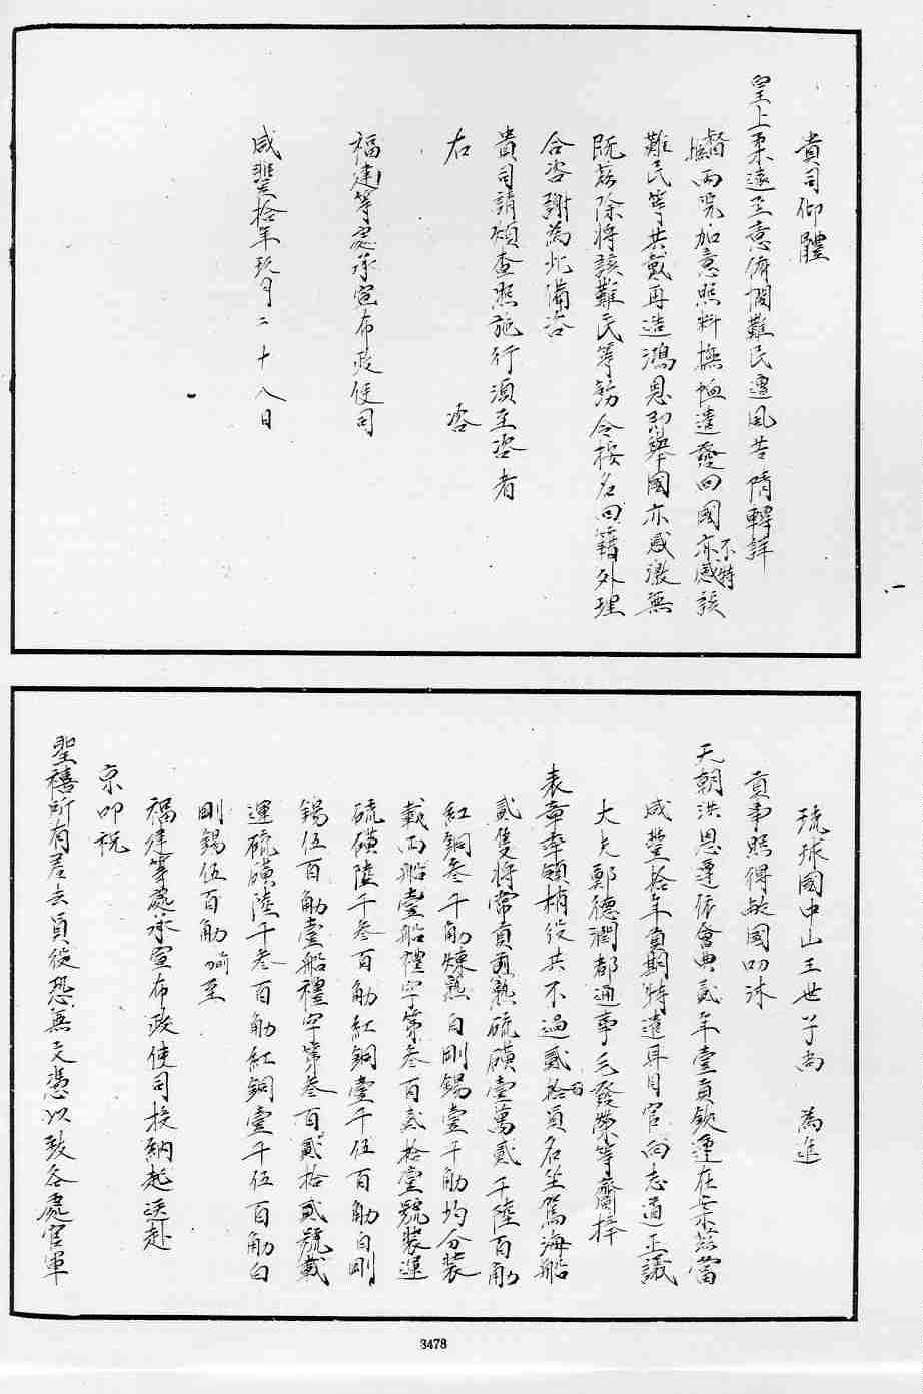 貴司仰體
皇上柔遠至意俯憫難民遭風苦情轉詳
督撫兩院加意照料撫恤遣發回國亦不特感該
難民等共戴再造鴻恩即舉國亦感激無
既茲除將該難民等飭令按名回籍外理
合咨謝為此備咨
貴司請煩查照施行須至咨者
右 咨
福建等處承宣布政使司
咸豐拾年玖月二十八日
琉球國中山王世子尚 為進
貢事照得敝國叨沐
天朝洪恩遵依會典貳年壹貢欽遵在案茲當
咸豐拾年貢期特遣耳目官向志道正議
大夫鄭德潤都通事毛發榮等齎捧
表章率領梢役共不過貳百拾員名坐駕海船
貳隻將常貢煎熟硫磺壹萬貳千陸百觔
紅銅叁千觔煉熟白剛錫壹千觔均分裝
載兩船壹船禮字第叁百貳拾壹號裝運
硫磺陸千叁百觔紅銅壹千伍百觔白剛
錫伍百觔壹船禮字第叁百貳拾貳號載
運硫磺陸千叁百觔紅銅壹千伍百觔白
剛錫伍百觔前至
福建等處承宣布政使司投納起送赴
京叩祝
聖禧所有差去員役恐無文憑以致各處官軍
3478